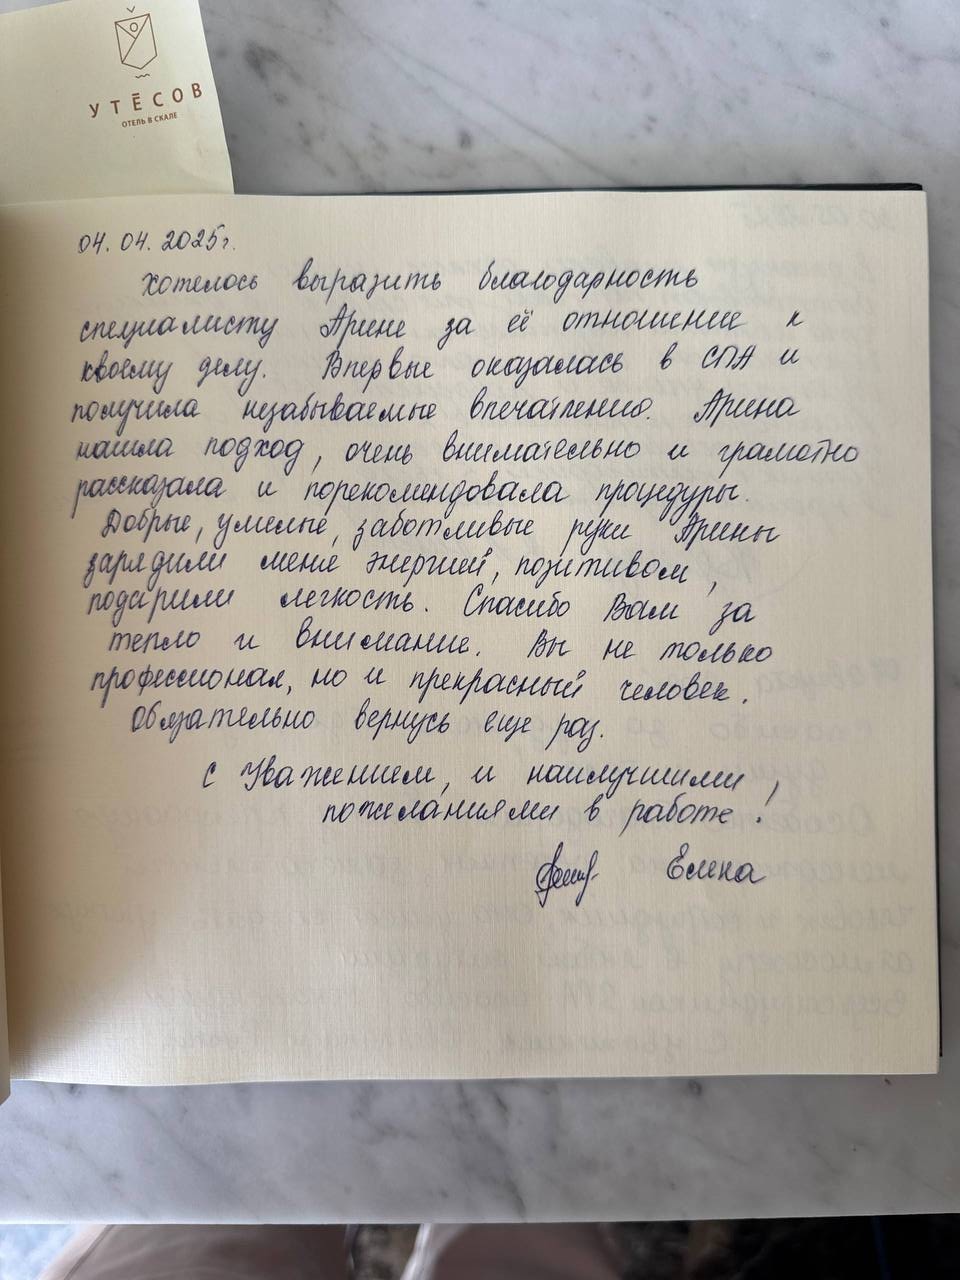 УТЁСОВ
ОТЕЛЬ В СКАЛЕ
04.04.2025г.
Хотелось выразить благодарность
специалисту Арине за её отношение к
квоему делу. Впервые оказалась в СПА и
получила незабываемые впечатления. Арина
нашла подход, очень внимательно и грамотно
рассказала и порекомендовала процедуры.
Добрые, умелые, заботливые руки Арины
зарядили меня энергией, позитивом,
подарили легкость. Спасибо Вам за
тепло и внимание. Вы не только
профессионал, но и прекрасный человек.
Обязательно вернусь еще раз.
С Уважением, и наилучшими,
пожеланиями в работе!
Елена